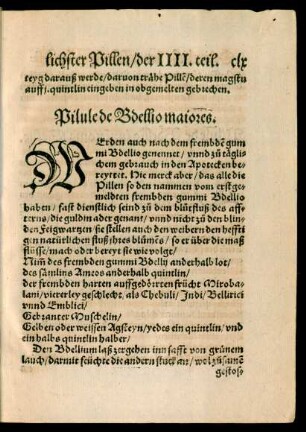 lichster Pillen/der IIII. teil. clx
teyg darauß werde/daruon trähe Pillē/deren magstu
auff j. quintlin eingeben in obgemelten gebrechen.
Pilule de Bdellio maiores.
WErden auch nach dem frembdē gum
mi Bdellio genennet/ vnnd zů täglis
chem gebrauch in den Apotecken be-
reyttet. Hie merck aber/das alle die
Pillen so den nammen vom erst ge-
meldten frembden gummi Bdellio
haben/ fast dienstlich seind zů dem blůtfluß des aff-
terns/die guldin ader genant/ vnnd nicht zů den blin-
den Feigwartzen/sie stellen auch den weibern den heffti
gen natürlichen fluß ihres blůmēs/ so er über die maß
flüsse/mach oder bereyt sie wie volgt/
Nim des frembden gummi Bdellij anderhalb lot/
des Amlins Ameos anderhalb quintlin/
der frembden harten auffgedörrten frücht Miroba-
lani/viererley geschlecht/als Chebuli/ Indi/ Bellirici
vnnd Emblici/
Gebranter Muschelin/
Gelben oder weissen Agsteyn/yedes ein quintlin/vnd
ein halbs quintlin halber/
Den Bdellium laß zergehen inn safft von grünem
lauch/darmit feüchte die andern stuck an/ wol zůsamē
gestoß